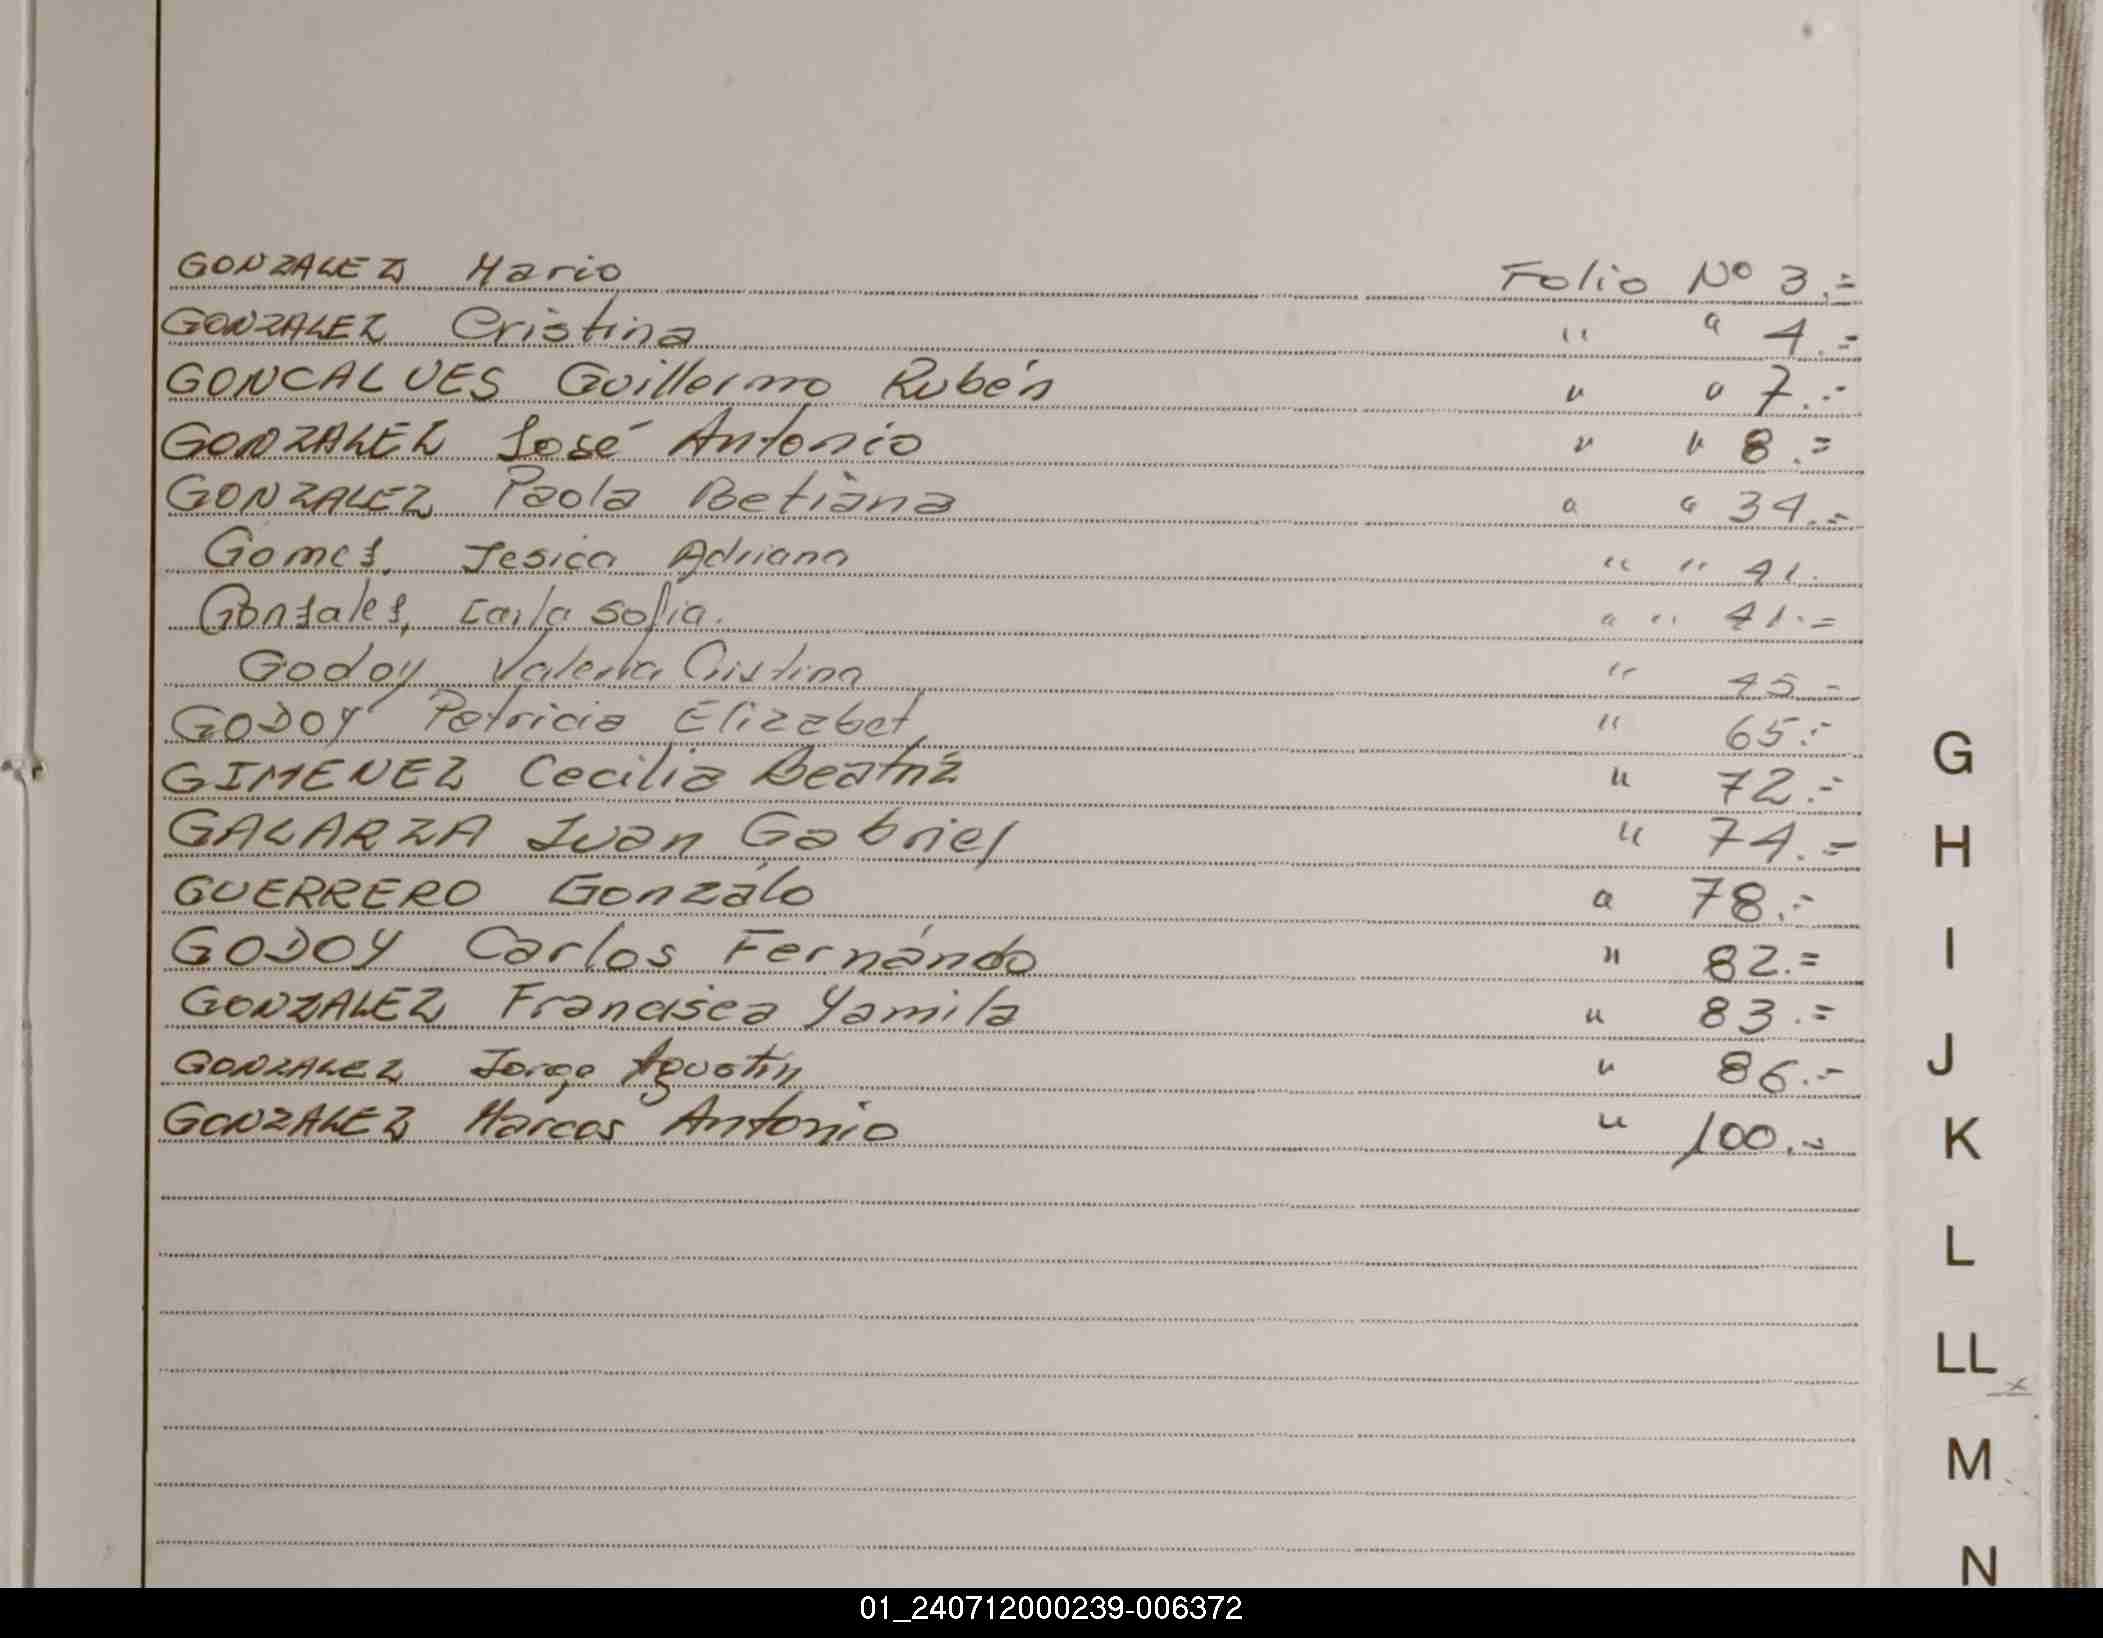 GONZALEZ Mario Folio Nº 3.=
GONZALEZ Cristina " " 4.=
GONCALVES Guillermo Rubén " " 7.=
GONZALEZ José Antonio " " 8.=
GONZALEZ Paola Betiana " " 34.=
Gomes, Jesica Adriana " " 41.
Gonsales, Carla Sofia. " " 41.=
Godoy Valeria Cristina " 45 -
GODOY Patricia Elizabet " 65.=
GIMENEZ Cecilia Beatriz " 72.=
GALARZA Ivan Gabriel " 74.=
GUERRERO Gonzálo " 78.=
GODOY Carlos Fernándo " 82.=
GONZALEZ Francisca Yamila " 83.=
GONZALEZ Jorge Agustin " 86.=
GONZALEZ Marcos Antonio " 100.=
G
H
I
J
K
L
LL
M
N
01_240712000239-006372